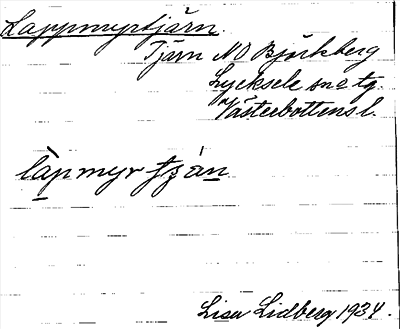 Lappmyrtjärn.
Tjärn NO Björkberg
Lycksele sn o tg.
Västerbottens l.
làpmyr tjàn
Lisa Lidberg 1934.